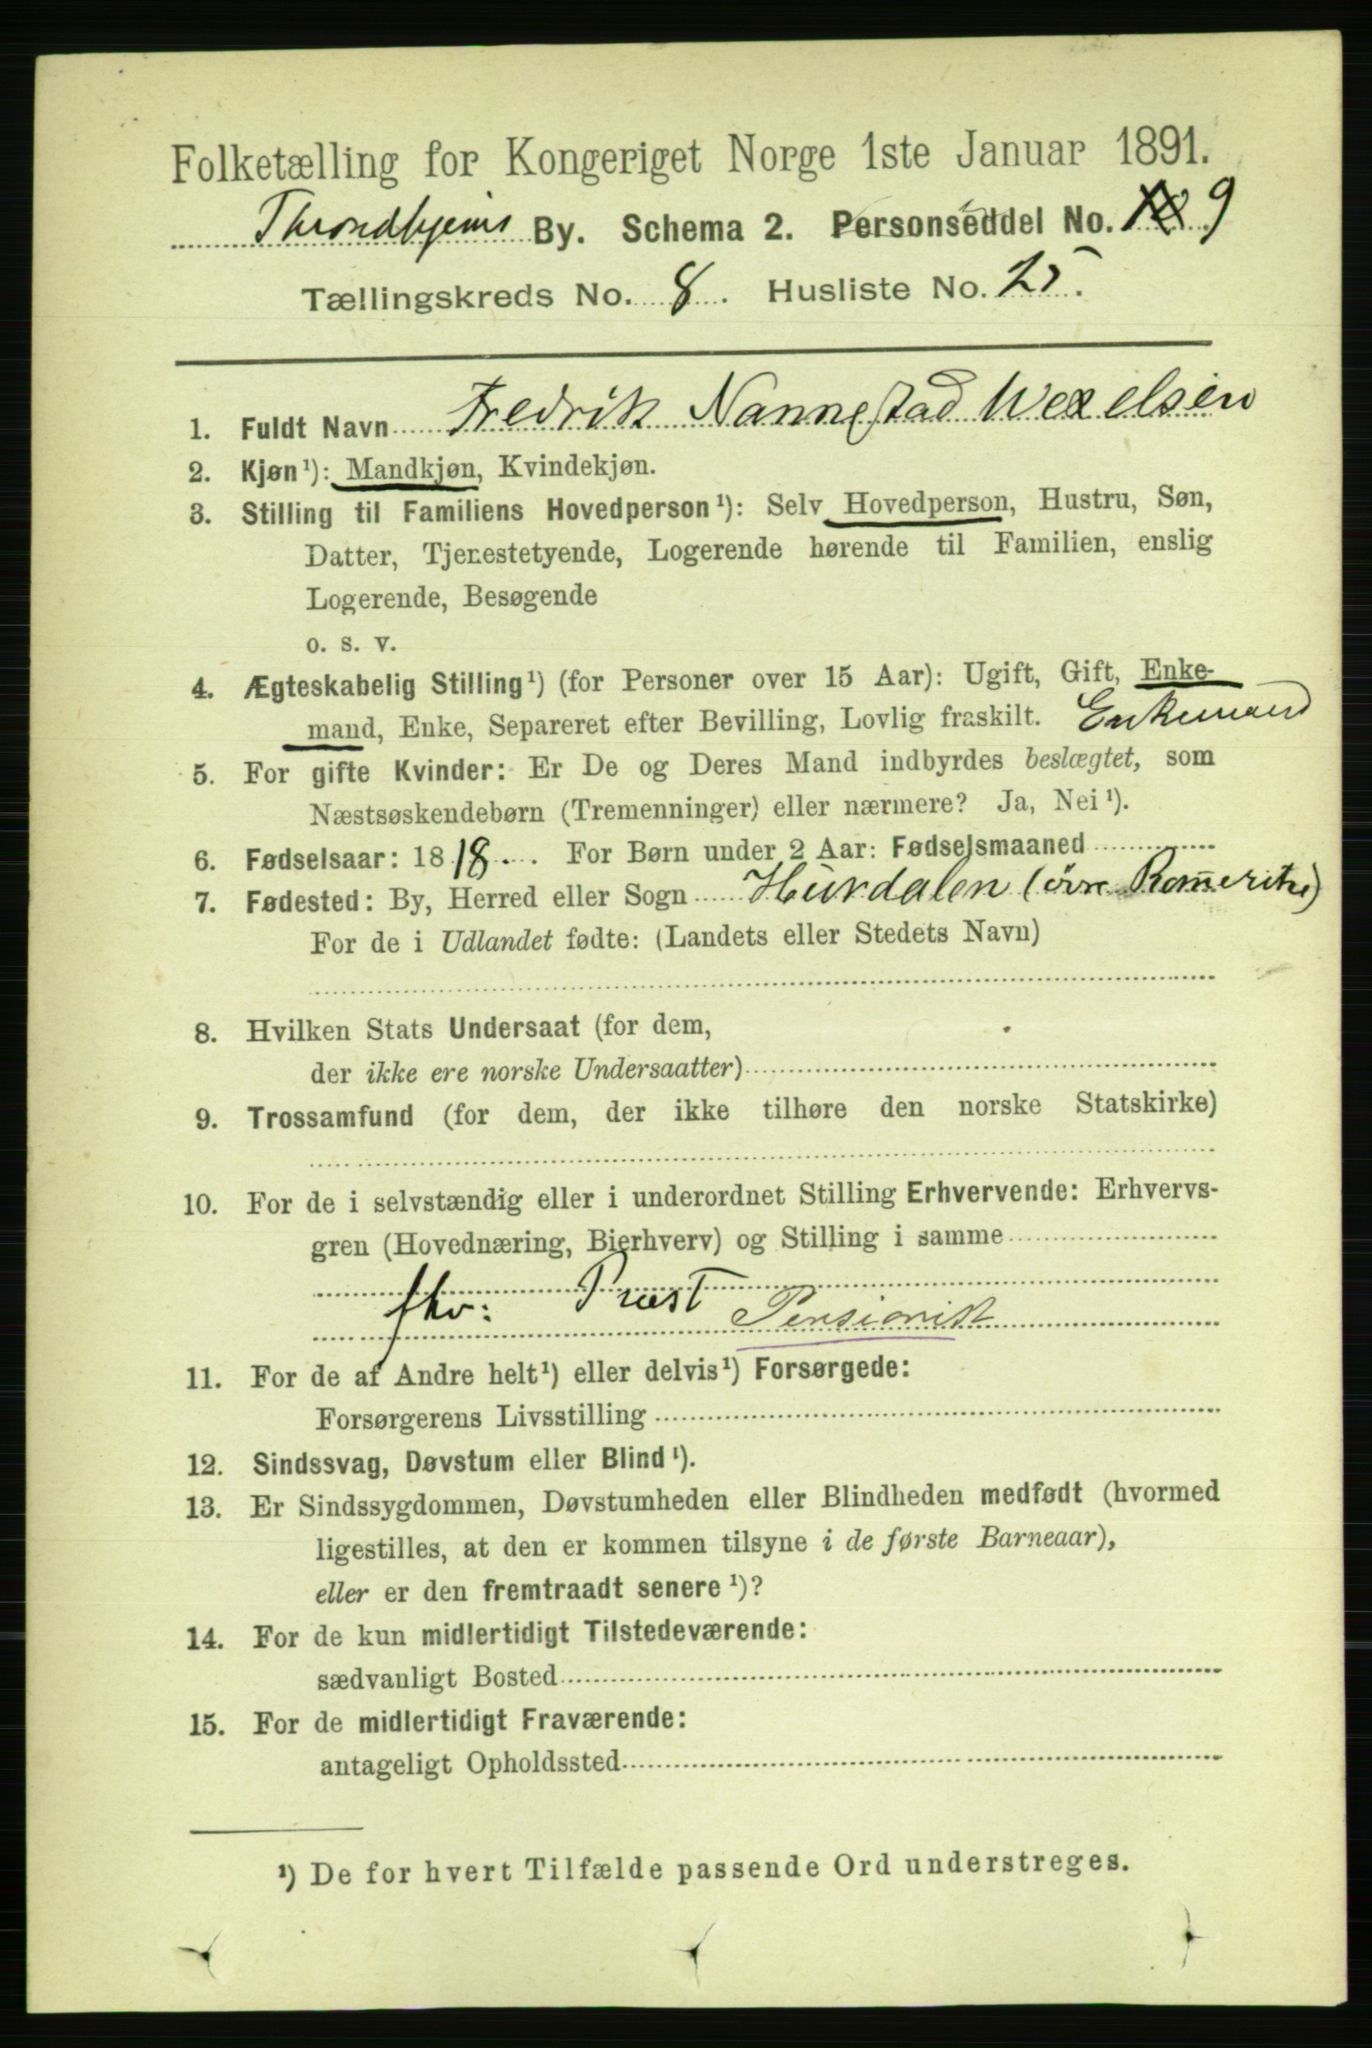 Folketælling for Kongeriget Norge 1ste Januar 1891.
Throndhjems By. Schema 2. Personseddel No. 9
Tællingskreds No. 8. Husliste No. 25.
1. Fuldt Navn Fredrik Nannestad Wexelsen
2. Kjøn¹): Mandkjøn, Kvindekjøn.
3. Stilling til Familiens Hovedperson¹): Selv Hovedperson, Hustru, Søn,
Datter, Tjenestetyende, Logerende hørende til Familien, enslig
Logerende, Besøgende
o. s. v.
4. Ægteskabelig Stilling¹) (for Personer over 15 Aar): Ugift, Gift, Enke-
mand, Enke, Separeret efter Bevilling, Lovlig fraskilt. Enkemand
5. For gifte Kvinder: Er De og Deres Mand indbyrdes beslægtet, som
Næstsøskendebørn (Tremenninger) eller nærmere? Ja, Nei¹).
6. Fødselsaar: 1818. For Børn under 2 Aar: Fødselsmaaned
7. Fødested: By, Herred eller Sogn Hurdalen (övre Romerike)
For de i Udlandet fødte: (Landets eller Stedets Navn)
8. Hvilken Stats Undersaat (for dem,
der ikke ere norske Undersaatter)
9. Trossamfund (for dem, der ikke tilhøre den norske Statskirke)
10. For de i selvstændig eller i underordnet Stilling Erhvervende: Erhvervs-
gren (Hovednæring, Bierhverv) og Stilling i samme
fhv: Præst Pensionist
11. For de af Andre helt¹) eller delvis¹) Forsørgede:
Forsørgerens Livsstilling
12. Sindssvag, Døvstum eller Blind¹).
13. Er Sindssygdommen, Døvstumheden eller Blindheden medfødt (hvormed
ligestilles, at den er kommen tilsyne i de første Barneaar),
eller er den fremtraadt senere¹)?
14. For de kun midlertidigt Tilstedeværende:
sædvanligt Bosted
15. For de midlertidigt Fraværende:
antageligt Opholdssted
¹) De for hvert Tilfælde passende Ord understreges.